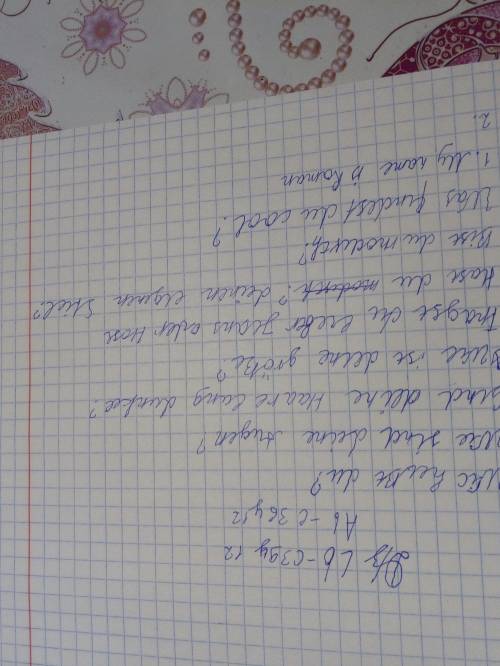 Д/з Lb - с 39 у 12
Ab - с 36 у 12
Wie heißt du?
Wie sind deine Augen?
Sind deine Haare lang dunkel?
Wie ist deine größe?
Trägst du lieber Jeans oder Hose
Hast du modisch? deinen eigenen Stiel?
Bist du modisch?
Was findest du cool?
1. My name is Roman
2.